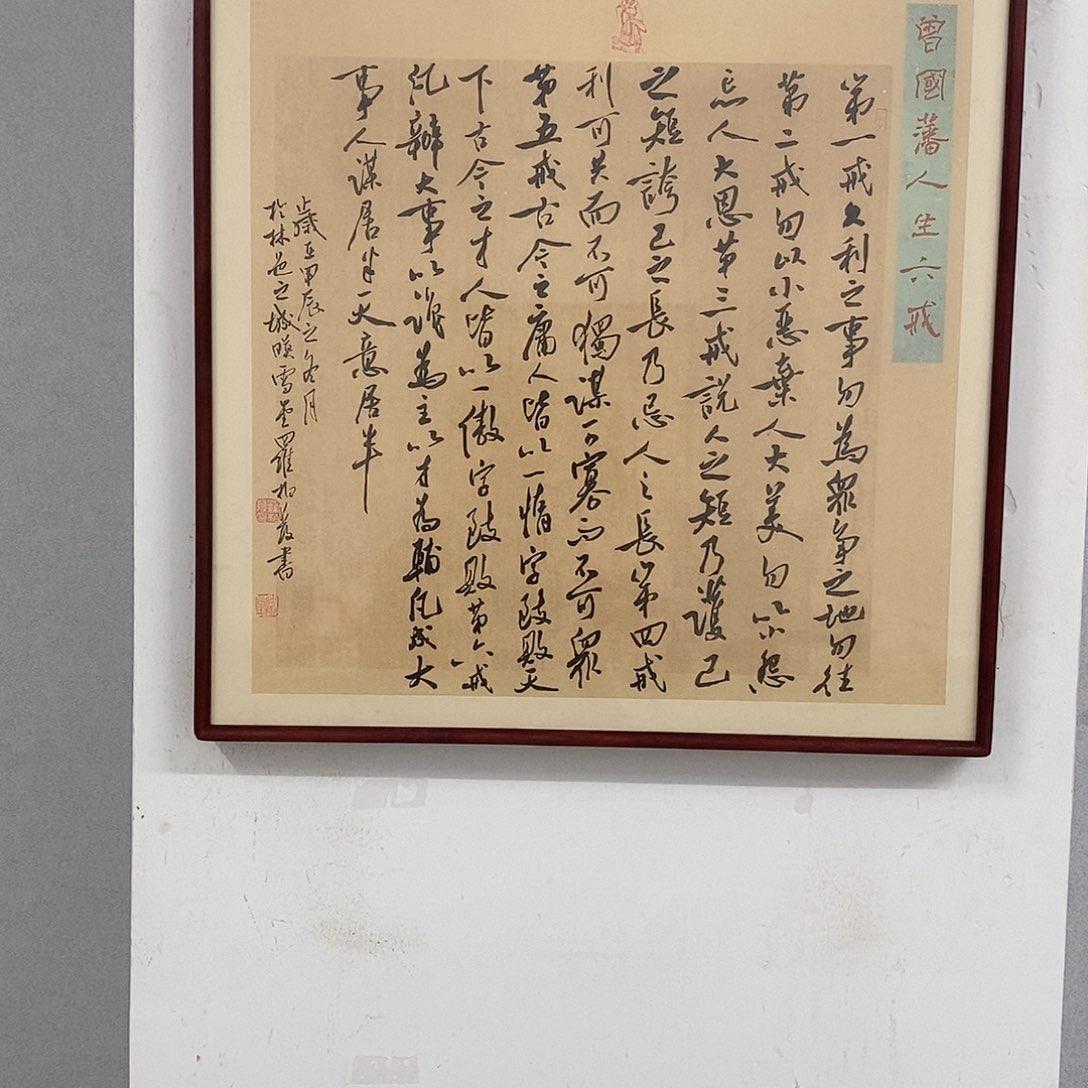 曾國藩人生六戒
第一戒久利之事勿為眾爭之地勿往
第二戒勿以小惡棄人大美勿以小怨
忘人大恩第三戒說人之短乃護己
之短誇己之長乃忌人之長第四戒
利可共而不可獨謀可寡而不可眾
第五戒古今之庸人皆以一惰字致敗天
下古今之才人皆以一傲字致敗第六戒
凡辦大事以識為主以才為輔凡成大
事人謀居半天意居半
歲在甲辰之冬月
於林邑之城映雪堂羅書